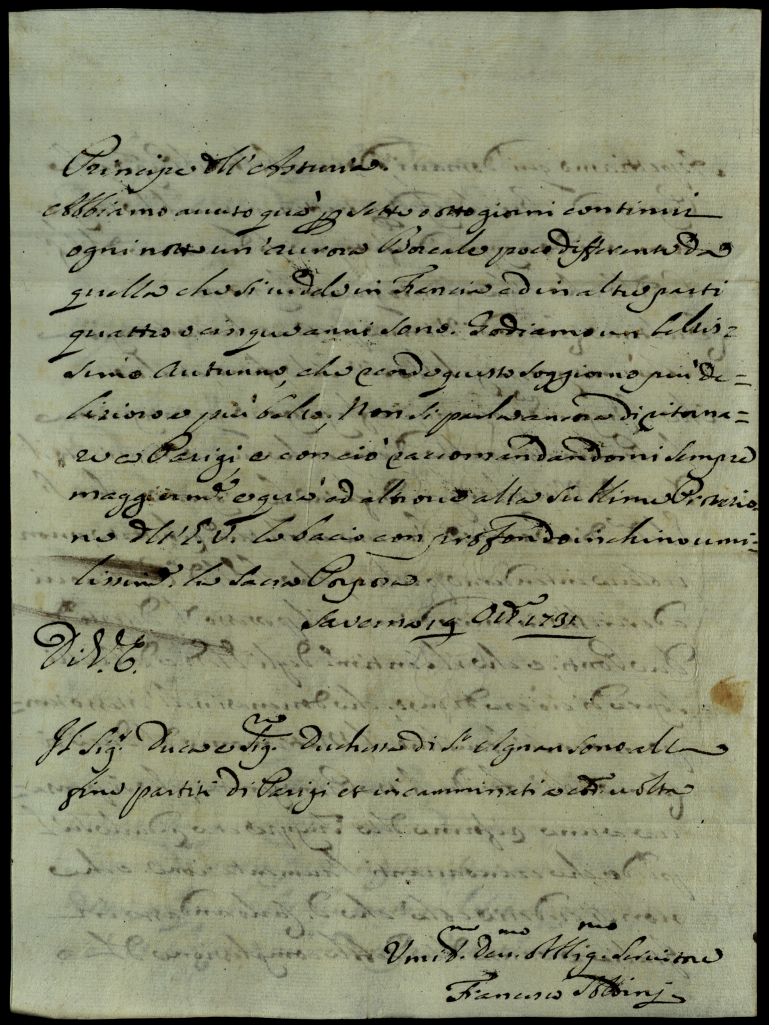 Principe dell'Asturia.
Abbiamo avuto quà p sette o otto giorni continui
ogni notte un'Aurora Boreale poco differente da
quella che si vidde in Francia ed in altre parti
quattro o cinque anni sono. Godiamo un bellis=
simo Autunno, che rende questo soggiorno più de=
lizioso e più bello; Non si parla ancora di ritorna=
re a Parigi, e con ciò raccomandandomi sempre
maggiormte e quà ed altrove alla sublime Protezio
ne dell'E. V. le bacio con profondo inchino umi=
lissime. la Sacra Porpora
Saverna 19 Obre 1731
Di V. E.
Il Sigr Duca e Sigra Duchessa di St Agnan sono alla
fine partiti di Parigi et incamminati a cod. volta
Umilmo Devmo Obligmo Servitore
Francesco